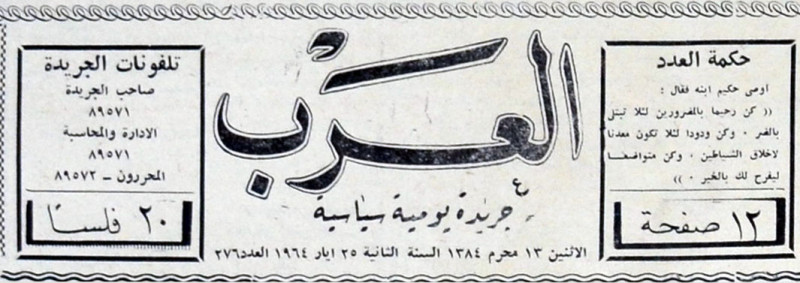 حكمة العدد
اوصى حكيم ابنه فقال :
(( كن رحيما بالضرورين لئلا تبتلى
بالضر ٠ وكن ودودا لئلا تكون معدنا
لاخلاق الشياطين ٠ وكن متواضعا
ليفرح لك بالخير ٠ ))
١٢ صفحة
العرب
جريدة يومية سياسية
الاثنين ١٣ محرم ١٣٨٤ السنة الثانية ٢٥ ايار ١٩٦٤ العدد ٢٧٦
تلفونات الجريدة
صاحب الجريدة
٨٩٥٧١
الادارة والمحاسبة
٨٩٥٧١
المحررون - ٨٩٥٧٢
٢٠ فلسا